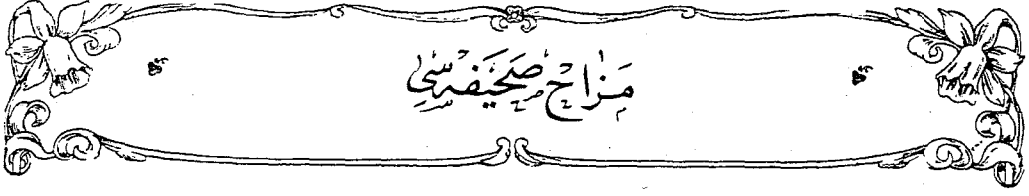 مزاح صحيفه‌سی